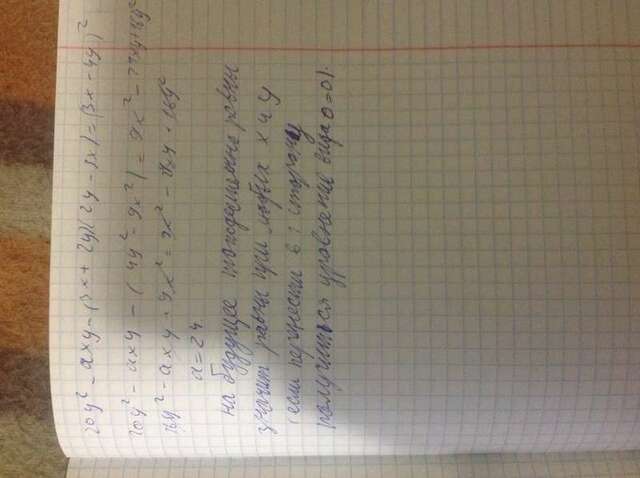 20y² - axy - (3x + 2y)(2y - 3x) = (3x - 4y)²
20y² - axy - (4y² - 9x²) = 9x² - 24xy + 16y²
16y² - axy + 9x² = 9x² - 24xy + 16y²
a = 24
на будущее тождественно равны
значит равны при любых x и y
(если перенести в 1 сторону
получиться уравнение вида 0=0).